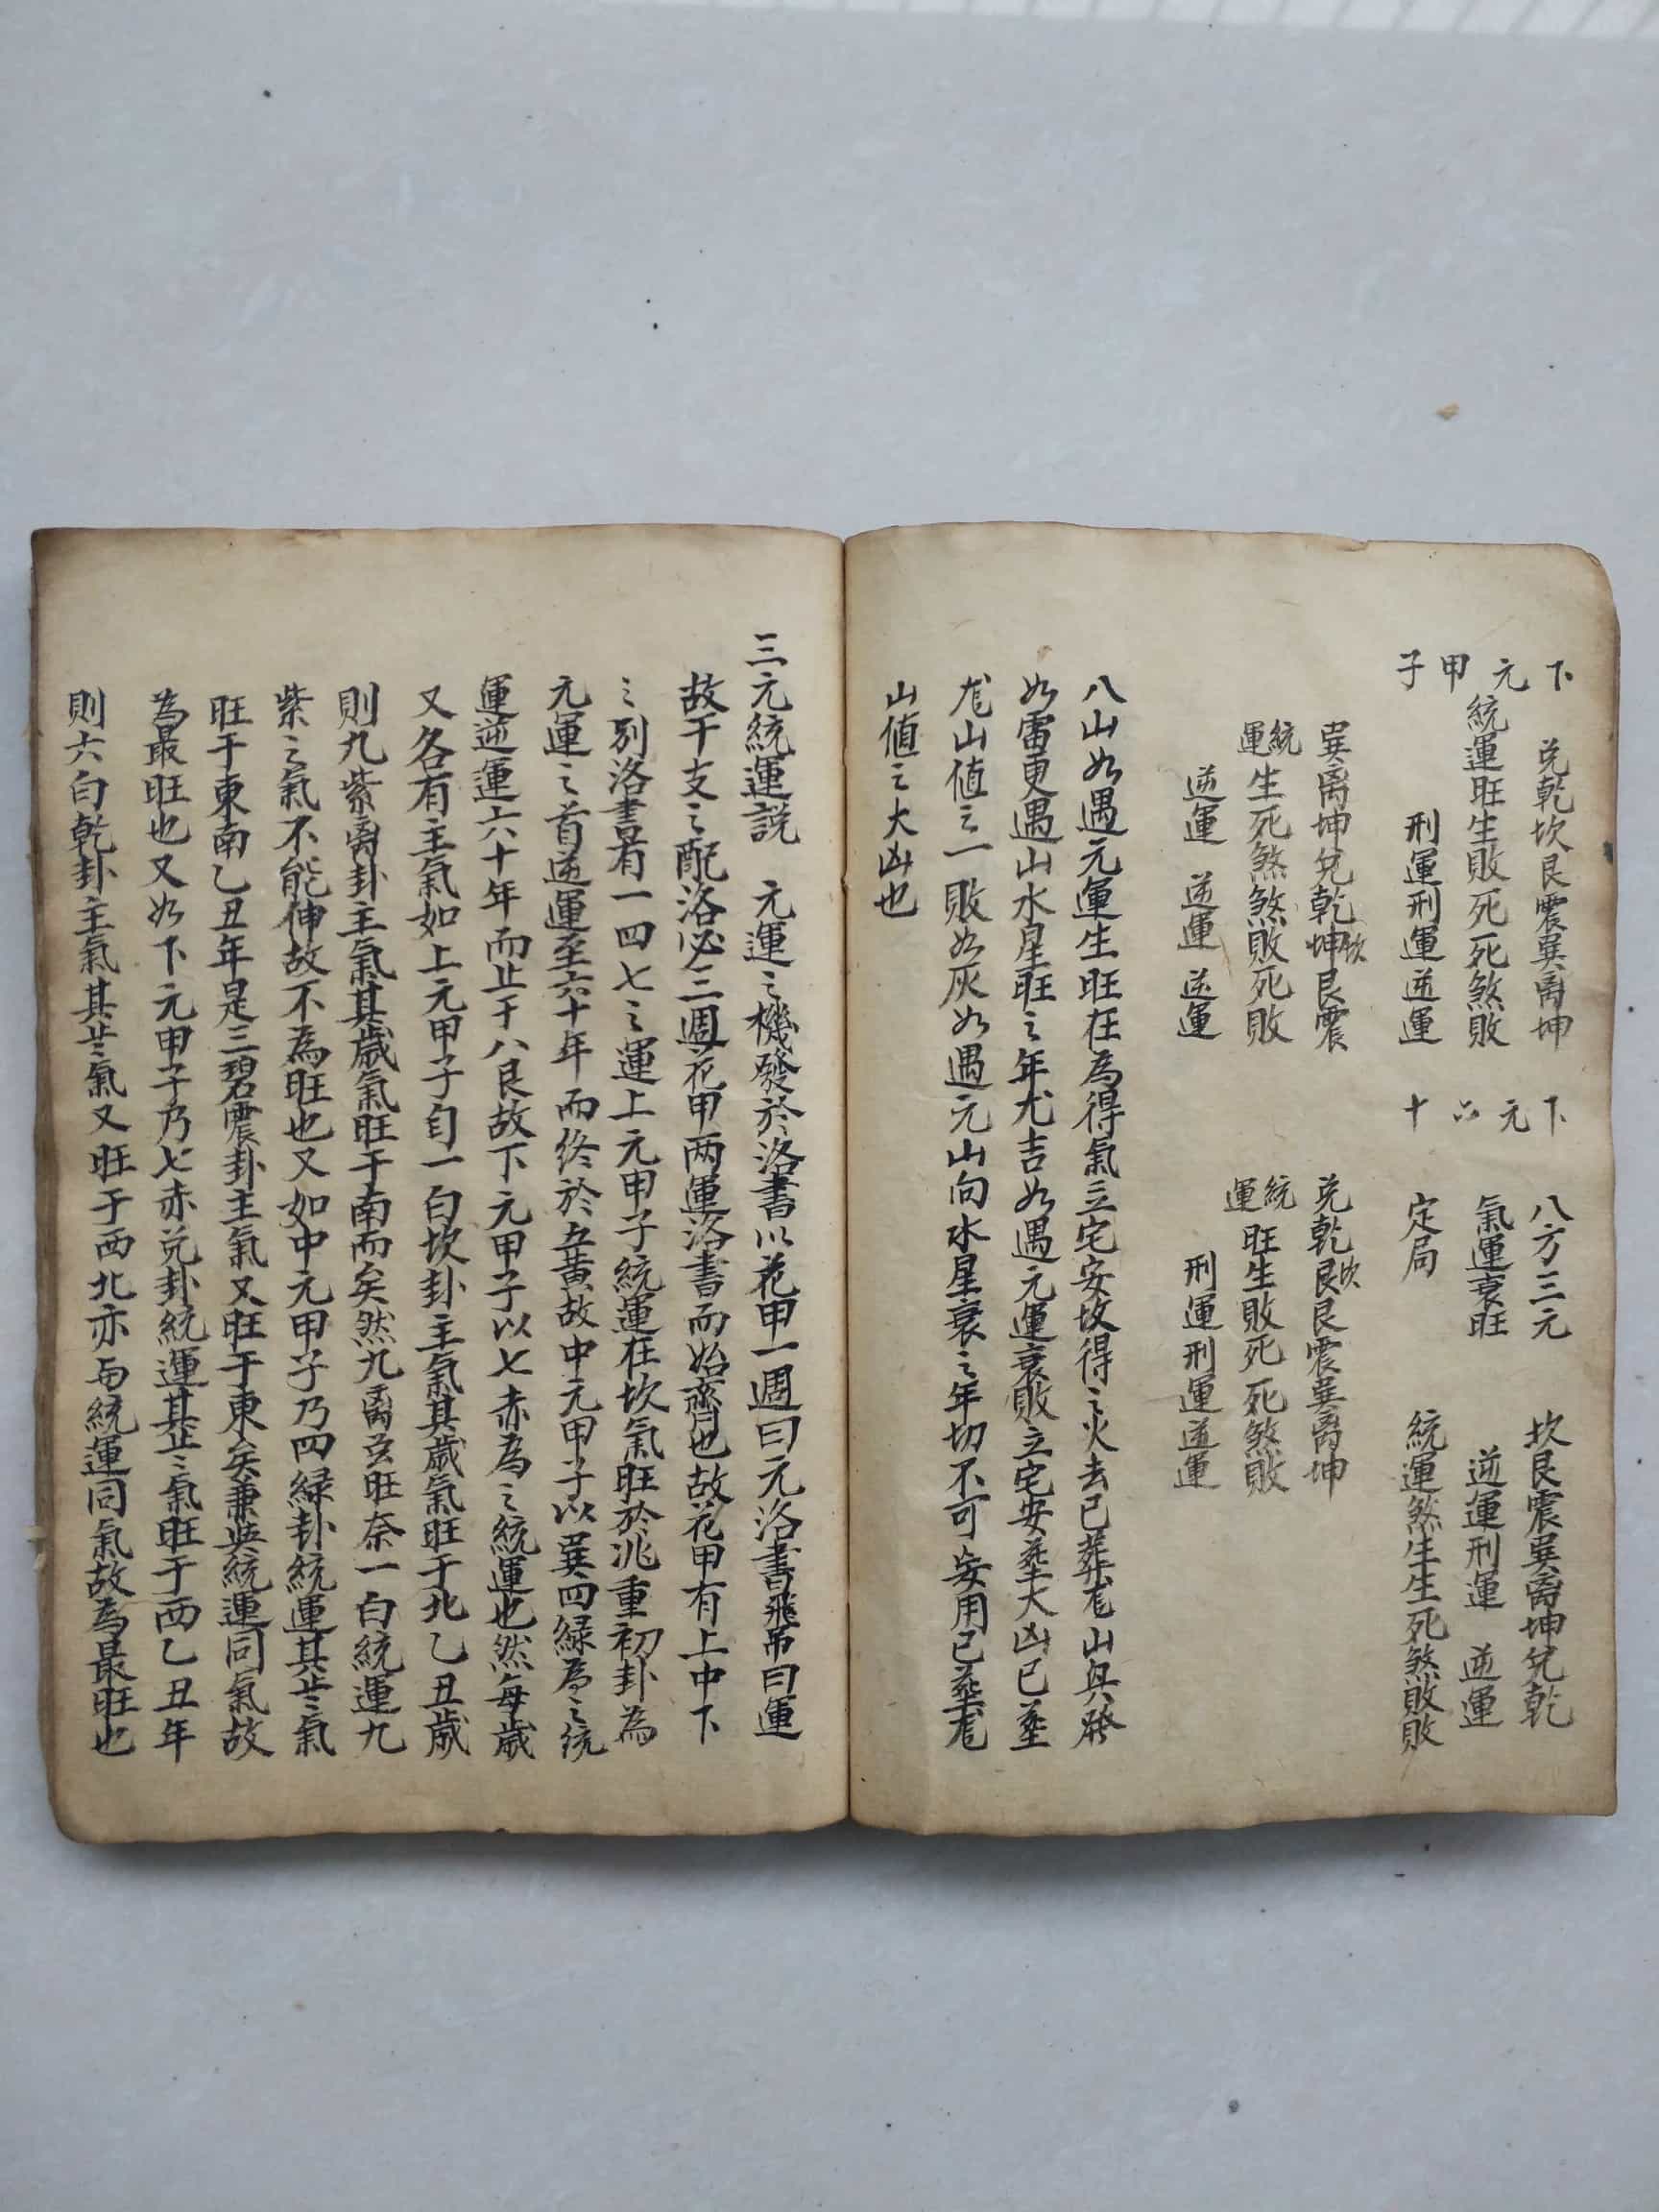 下元甲子
兑乾坎艮震巽离坤
統運旺生敗死死煞敗
刑運刑運逆運
巽离坤兑乾坤坎艮震
統運生死煞煞敗死敗
逆運 逆運 逆運
下元六十
八方三元
氣運衰旺
定局
坎艮震巽离坤兑乾
逆運刑運 逆運
統運煞生生死煞敗敗
兑乾艮坎艮震巽离坤
統運旺生敗死死煞敗
刑運刑運逆運
八山如遇元運生旺在為得氣立宅安坟得之火去已葬山與發
如雷更遇山水星旺之年尤吉如遇元運衰敗立宅安葬大凶已葬
山值之一敗如灰如遇元山向水星衰之年切不可安用已葬
山值之大凶也
三元統運説 元運之機發於洛書以花甲一週曰元洛書飛吊曰運
故干支之配洛必三週花甲两運洛書而始齊也故花甲有上中下
之别洛書有一四七之運上元甲子統運在坎氣旺於兆重初卦為
元運之首逆運至六十年而終於五黄故中元甲子以巽四緑為之統
運逆運六十年而止于八艮故下元甲子以七赤為之統運也然每歲
又各有主氣如上元甲子自一白坎卦主氣其歲氣旺于北乙丑歲
則九紫离卦主氣其歲氣旺于南而矣然九离雖旺奈一白統運九
紫之氣不能伸故不為旺也又如中元甲子乃四緑卦統運其年氣
旺于東南乙丑年是三碧震卦主氣又旺于東矣兼與統運同氣故
為最旺也又如下元甲子乃七赤兑卦統運其年之氣旺于西乙丑年
則六白乾卦主氣其年氣又旺于西北亦與統運同氣故為最旺也